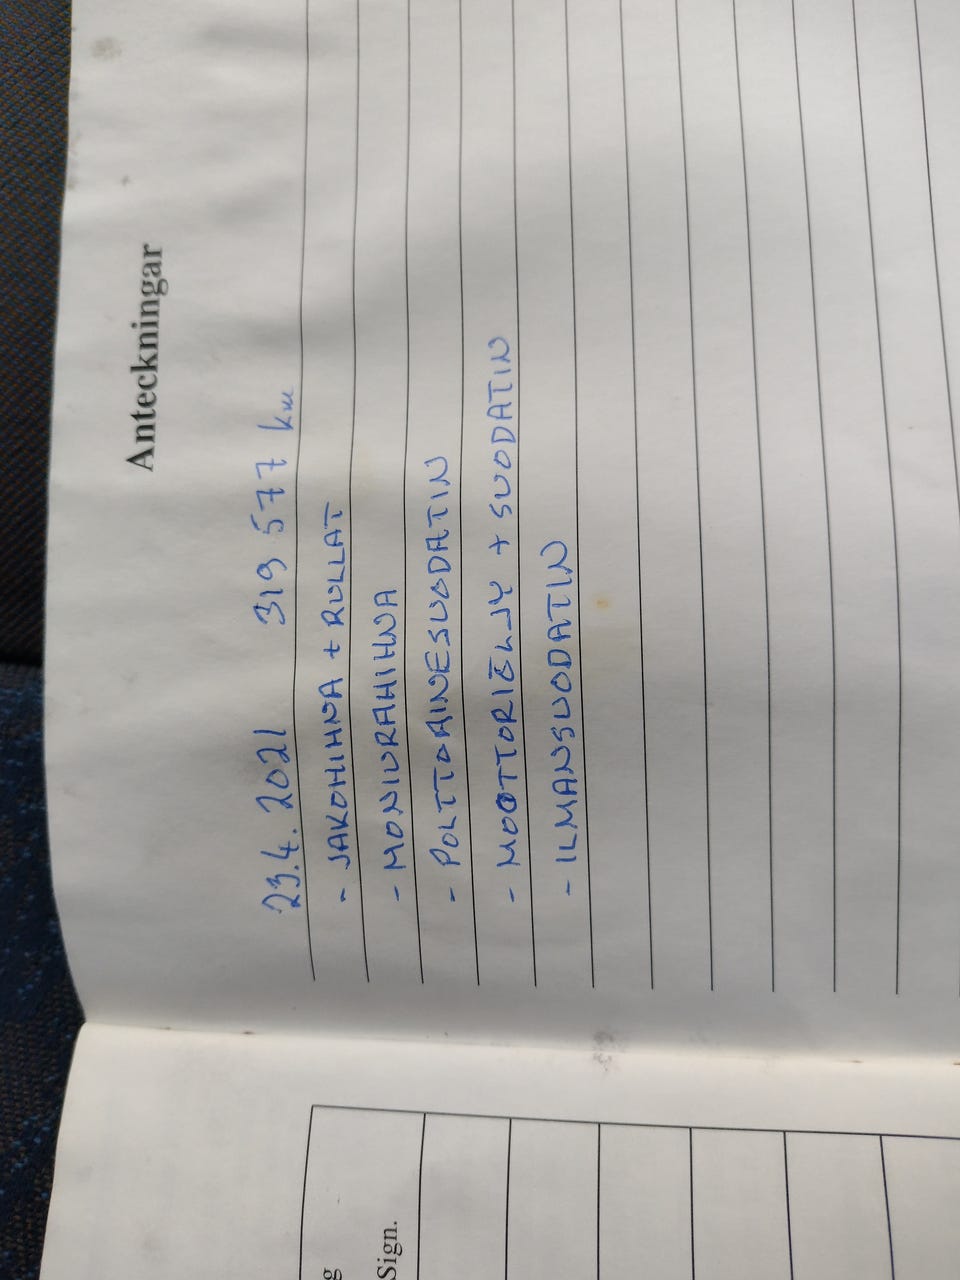 Anteckningar
23.4.2021 319 577 km
- JAKOHIHNA + RULLAT
- MONIURAHIHNA
- POLTTOAINESUODATIN
- MOOTTORIÖLJY + SUODATIN
- ILMANSUODATIN
g
Sign.